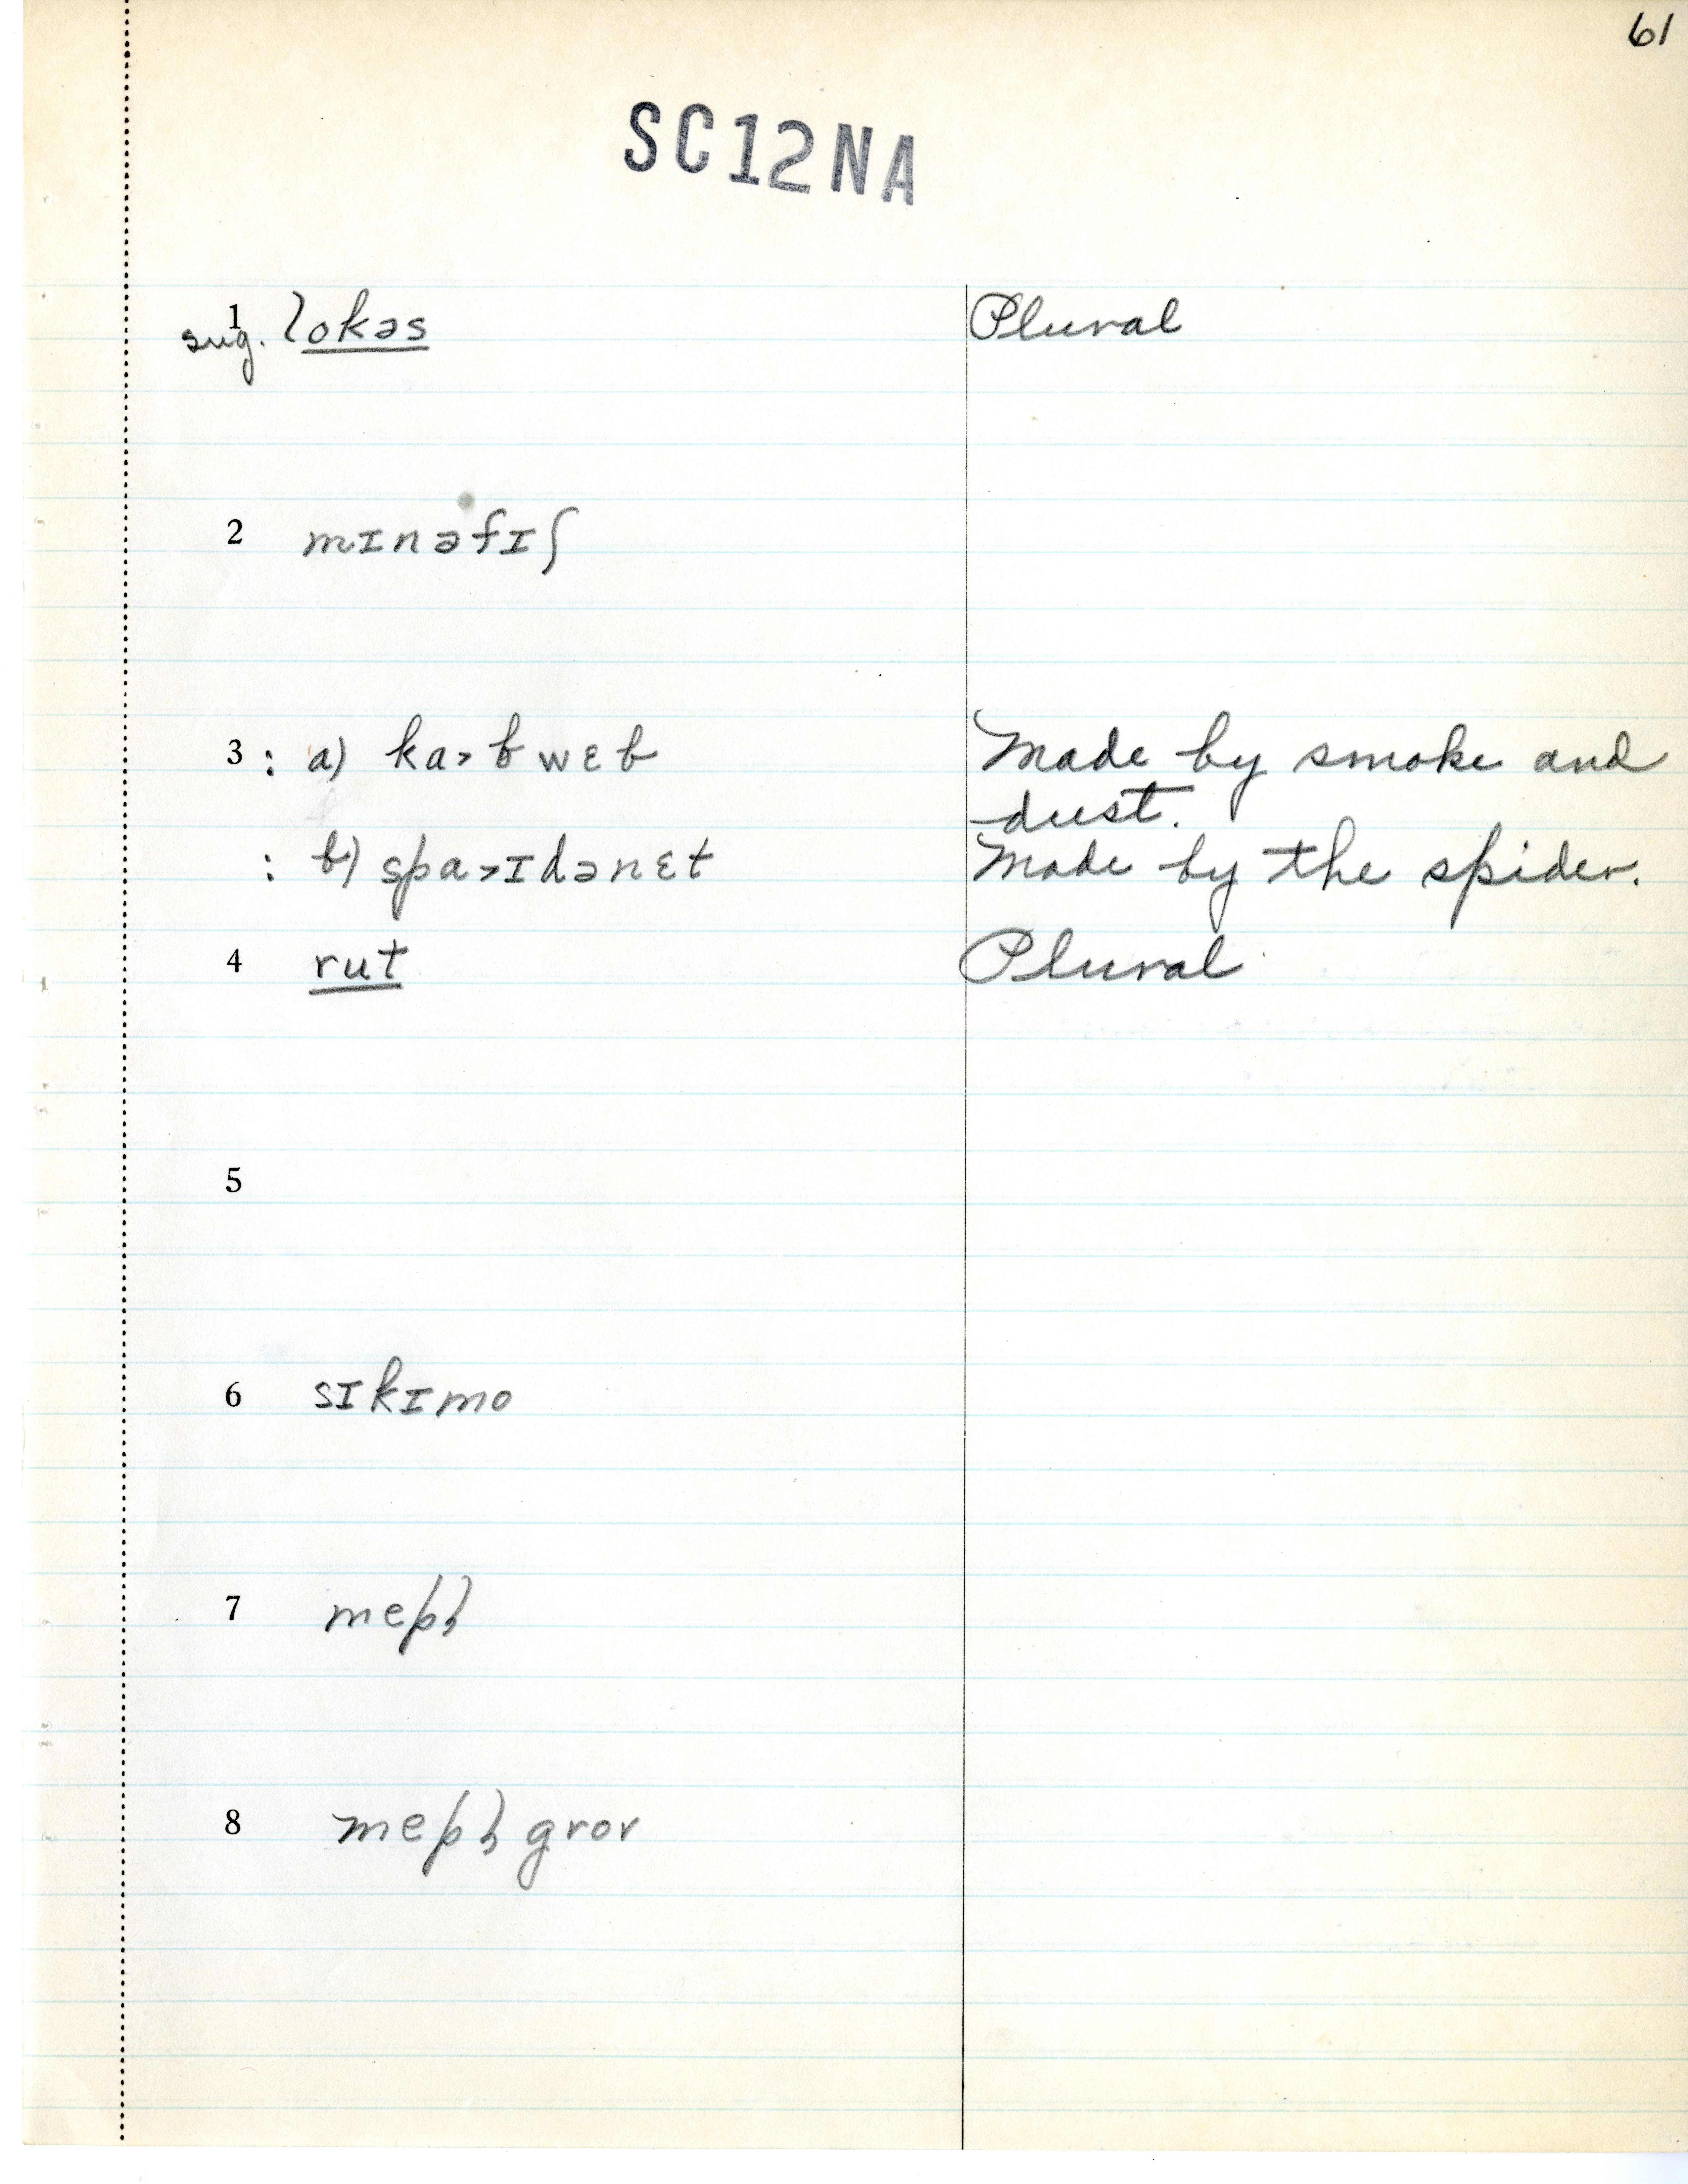 61
SC12NA
1 sug. lokəs Plural
2 mɪnəfɪʃ
3 : a) ka>bwɛb Made by smoke and
dust.
: b) spa>ɪdənɛt Made by the spider.
4 rut Plural
5
6 sɪkɪmo
7 mepḷ
8 mepḷ grov